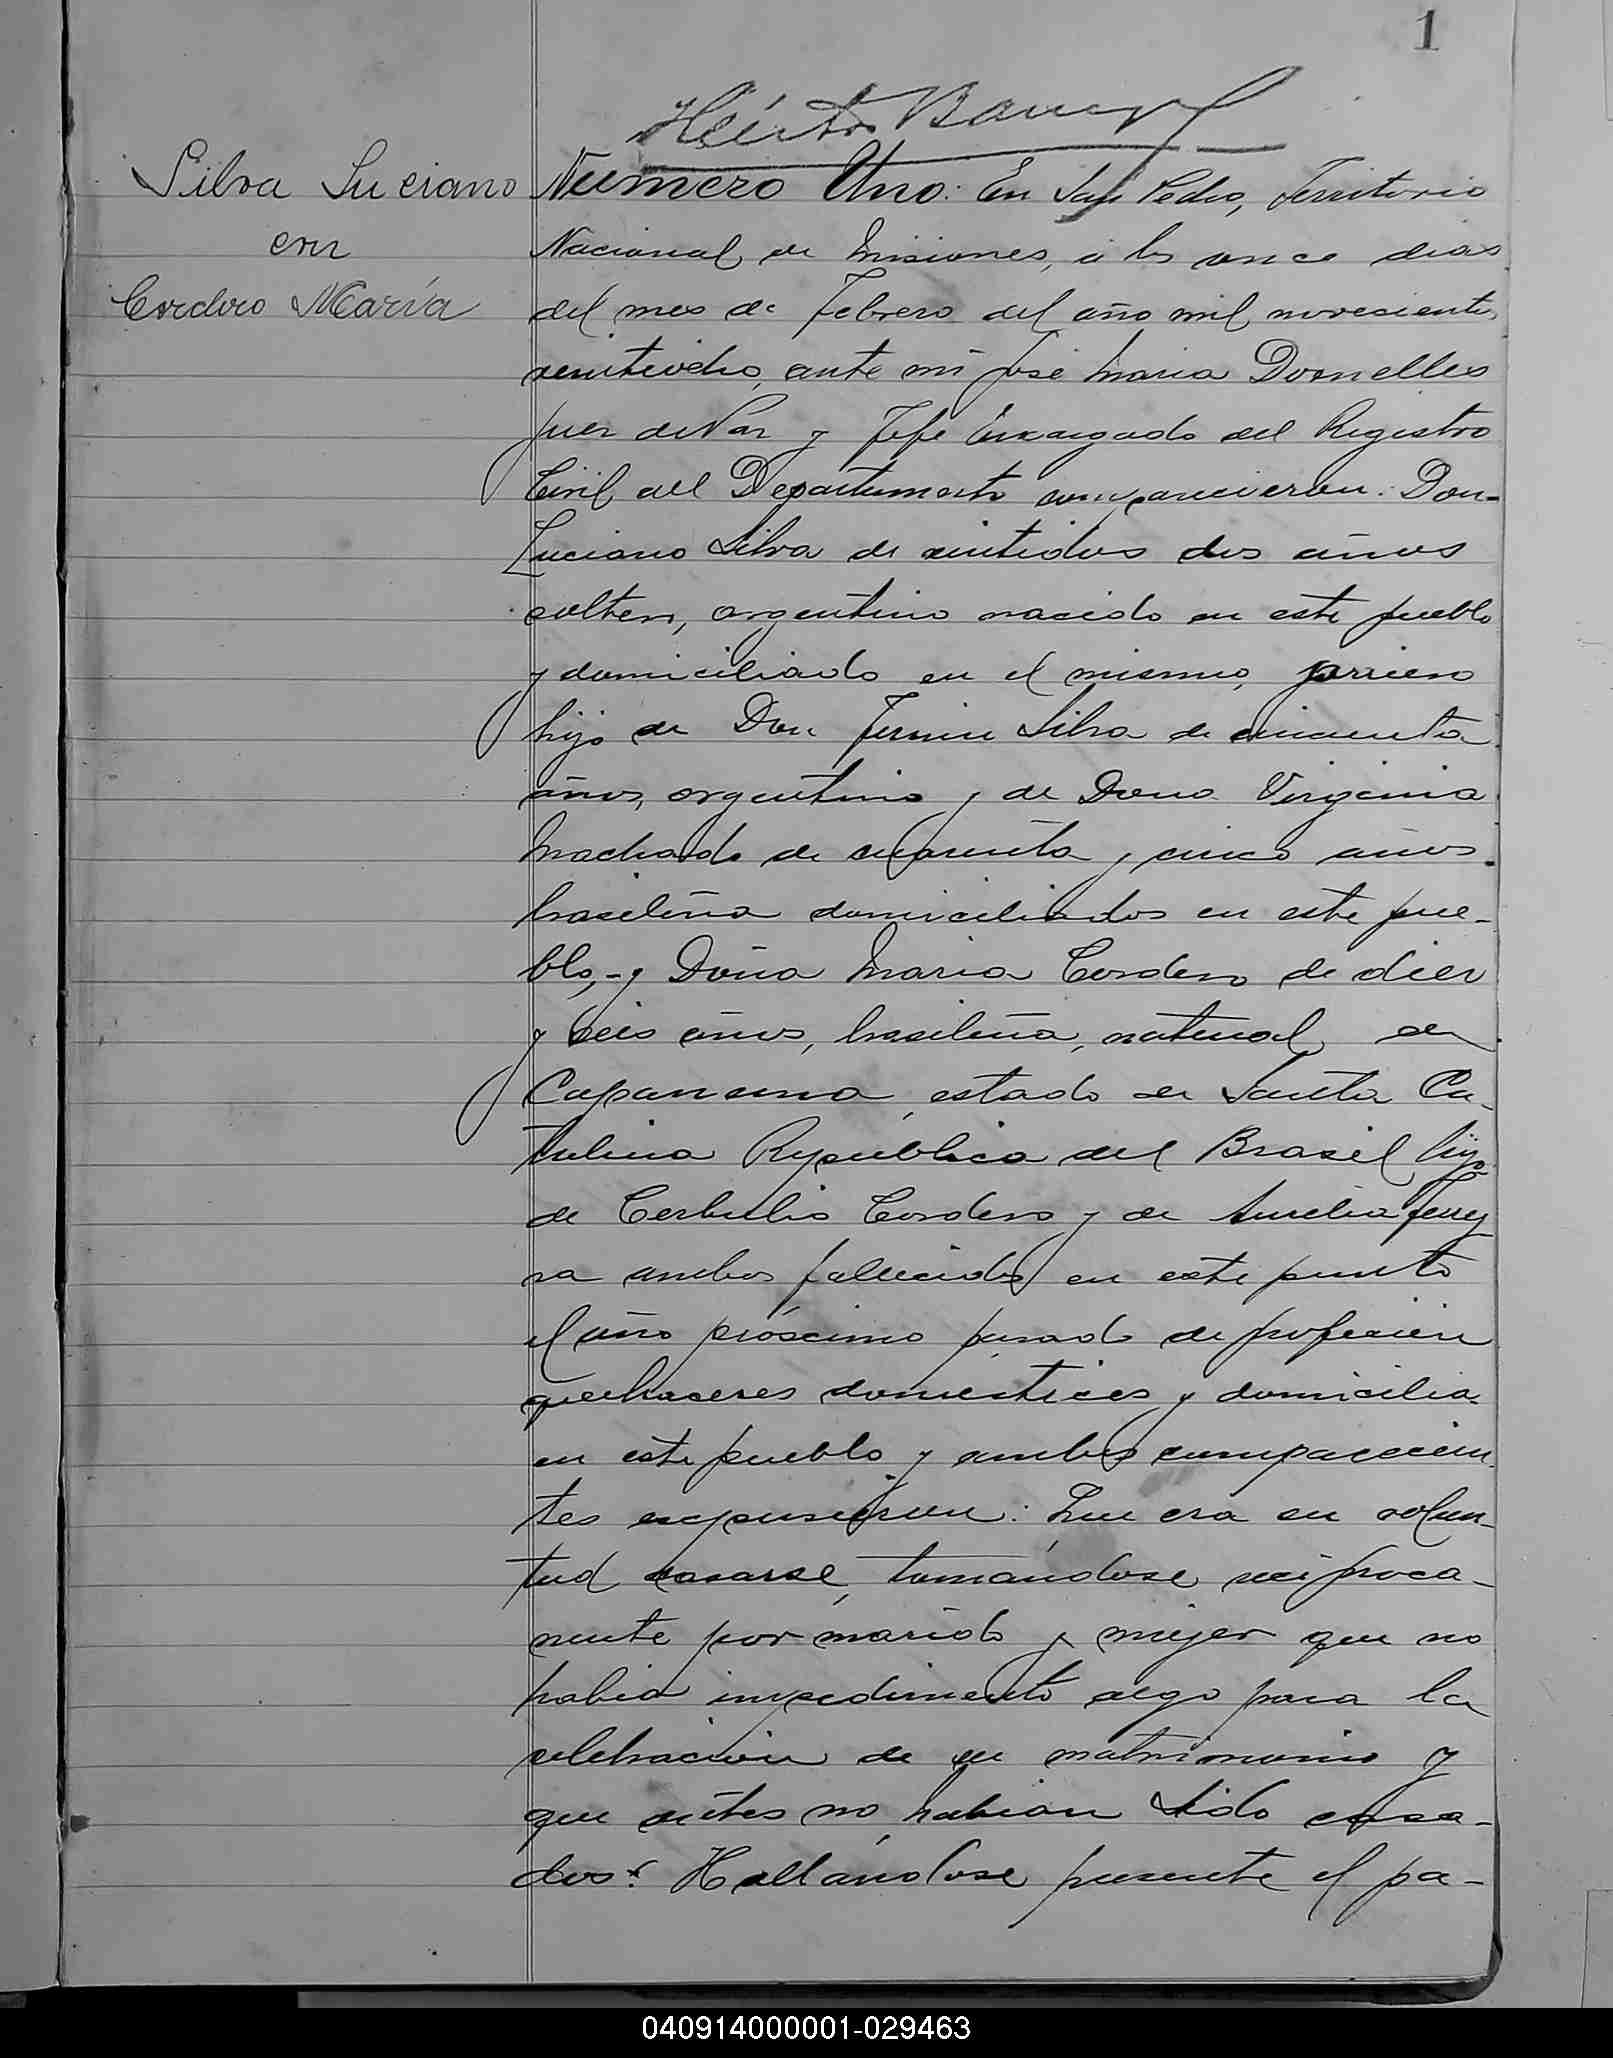 1
Héctor
Silva Luciano
con
Cordero María
Numero Uno: En San Pedro, Territorio
Nacional de Misiones, a los once dias
del mes de Febrero del año mil novecientos
veintiocho, ante mi José Maria Dornelles
Juez de Paz y Jefe Encargado del Registro
Civil del Departamento comparecieron: Don
Luciano Silva de veintidos dos años
soltero, argentino nacido en este pueblo
y domiciliado en el mismo,
hijo de Don Fermin Silva de cincuenta
años, argentino y de Dona Virginia
Machado de cuarenta y cinco años
brasileña domiciliados en este pue-
blo,- y Doña Maria Cordero de diez
y seis años, brasileña, natural de
Capanema, estado de Santa Ca-
talina República del Brasil hija
de Cordero y de Aurelia Ferrey
ra ambos fallecidos en este punto
el año próximo pasado de profesión
quehaceres domésticos y domicilia-
en este pueblo y ambos comparecien-
tes expusieron: Que era su volun-
tad casarse, tomándose recíproca-
mente por marido y mujer que no
habia impedimento algo para la
celebración de su matrimonio y
que antes no habian sido casa-
dos. Hallandose presente el pa-
040914000001-029463